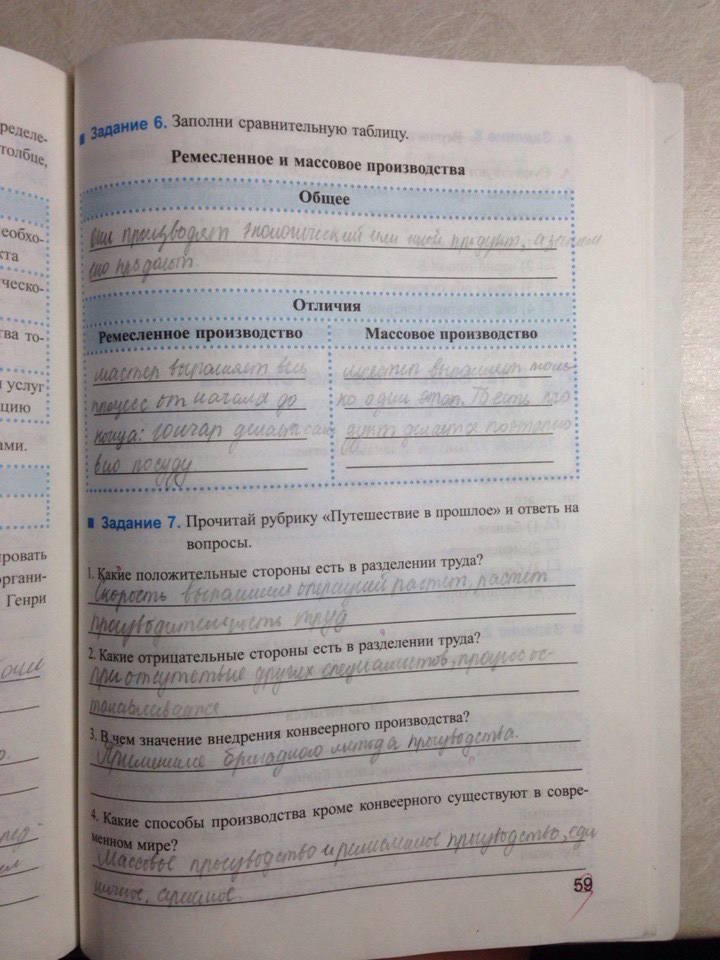 ределе-
толбце,
необхо-
кта
ческо-
тва то-
и услуг
кцию
ами.
ировать
органи-
Генри
Задание 6. Заполни сравнительную таблицу.
Ремесленное и массовое производства
Общее
Они производят экономический или иной продукт, а затем
его продают
Отличия
Ремесленное производство
Массовое производство
мастер выполняет весь
процесс от начала до
конца: гончар делает
посуду
мастер выполняет толь
ко один этап. То есть про
дукт делается поэтапно
Задание 7. Прочитай рубрику «Путешествие в прошлое» и ответь на
вопросы.
1. Какие положительные стороны есть в разделении труда?
Скорость выполнения операций растет, растет
производительность труд
2. Какие отрицательные стороны есть в разделении труда?
при отсутствие других специалистов, процесс ос-
танавливается
3. В чем значение внедрения конвеерного производства?
Применение бригадного метода производства.
4. Какие способы производства кроме конвеерного существуют в совре-
менном мире?
Массовое производство и ремесленное производство, еди
ничное, серийное.
59